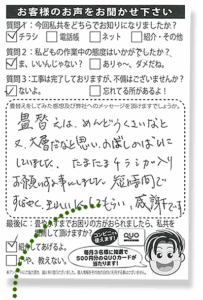 お客様のお声をお聞かせ下さい
質問1：今回私共をどちらでお知りになりましたか？
チラシ 電話帳 ネット 紹介・その他
質問2：私どもの作業中の態度はいかがでしたか？
ま、いいんじゃない？ ありゃ〜、ダメだね。
質問3：工事は完了しておりますが、不備はございませんか？
ないよ。 忘れてる所があるよ！
畳替えをしてみた感想及び弊社へのメッセージを頂けますでしょうか。
畳替えは、めんどうくさいなと
又、大層だなと思い、のばしのばしに
していました。たまたまチラシが入り
お願いする事にしました。短時間で
感謝です
最後に：
毎月3名様に抽選で
500円分のQUOカードが
当たります！
QUO